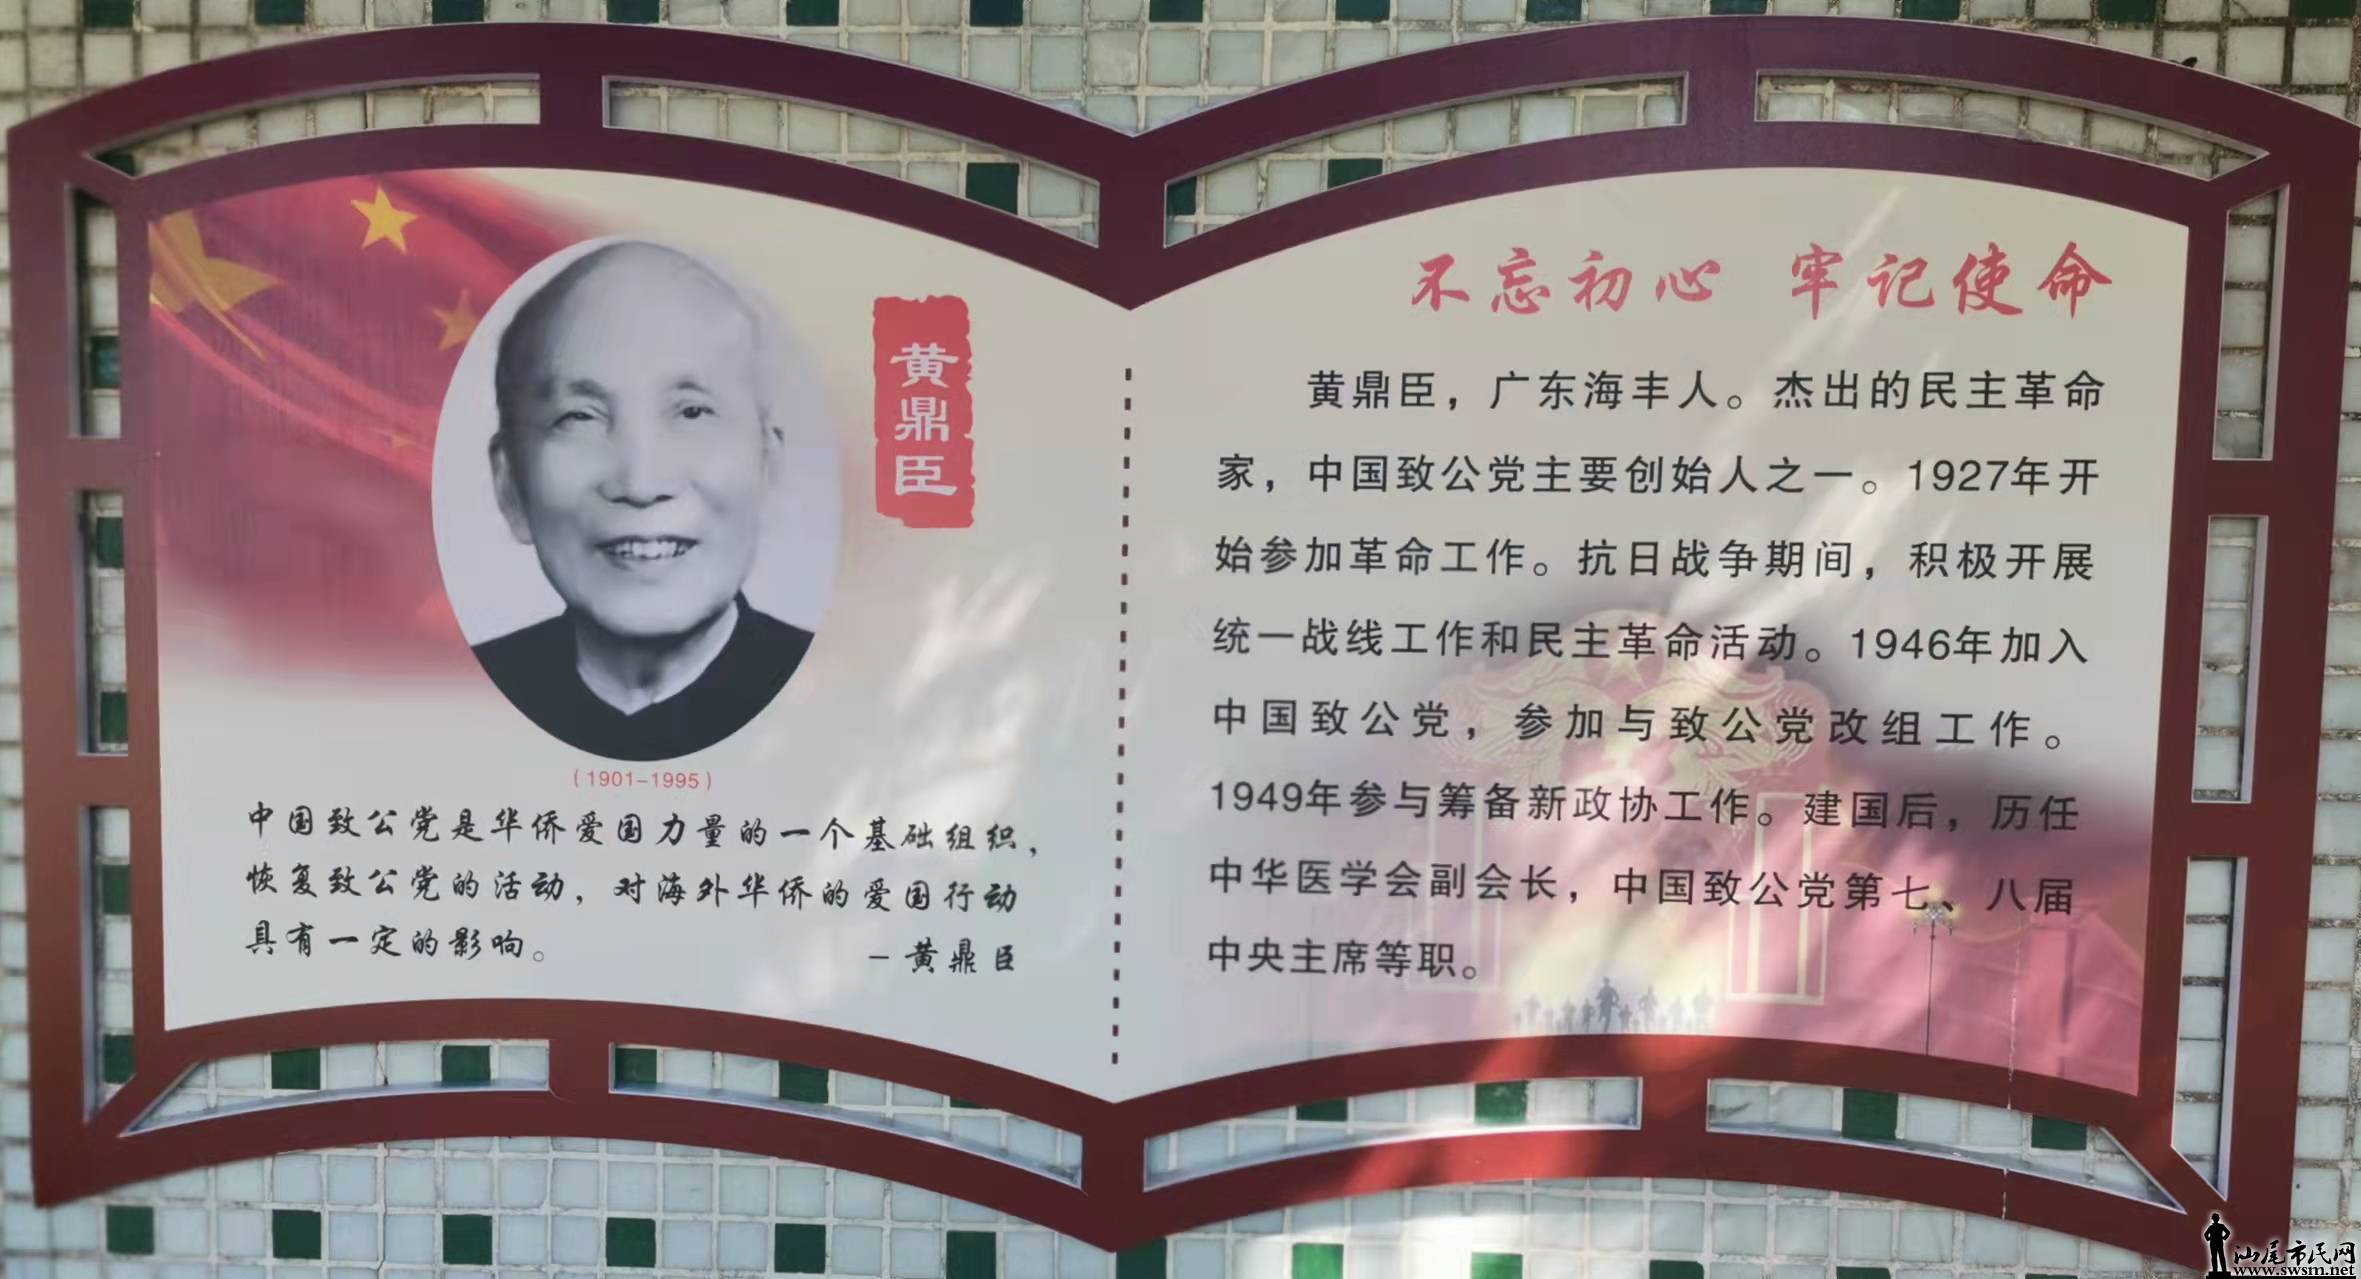 黄鼎臣
（1901-1995）
中国致公党是华侨爱国力量的一个基础组织，
恢复致公党的活动，对海外华侨的爱国行动
具有一定的影响。
－黄鼎臣
不忘初心 牢记使命
黄鼎臣，广东海丰人。杰出的民主革命
家，中国致公党主要创始人之一。1927年开
始参加革命工作。抗日战争期间，积极开展
统一战线工作和民主革命活动。1946年加入
中国致公党，参加与致公党改组工作。
1949年参与筹备新政协工作。建国后，历任
中华医学会副会长，中国致公党第七、八届
中央主席等职。
汕尾市民网
www.swsm.net